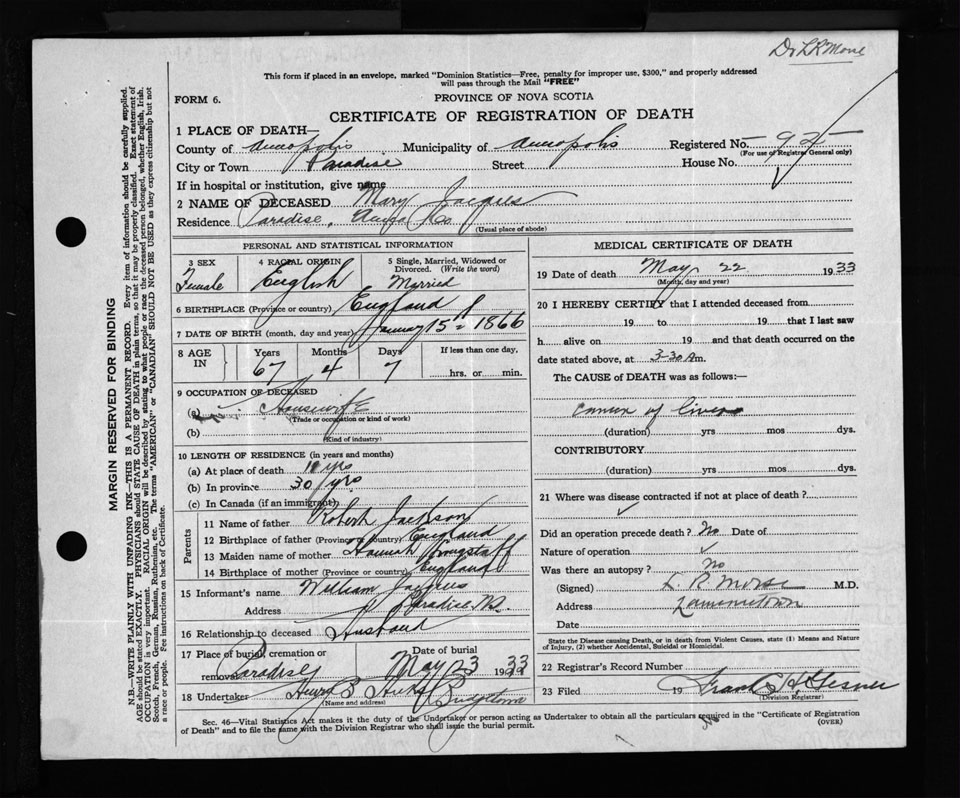 Dr L R Morse
This form if placed in an envelope, marked "Dominion Statistics—Free, penalty for improper use, $300," and properly addressed
will pass through the Mail "FREE"
FORM 6.
PROVINCE OF NOVA SCOTIA
CERTIFICATE OF REGISTRATION OF DEATH
1 PLACE OF DEATH—
County of Annapolis Municipality of Annapolis Registered No. 925
(For use of Registrar General only)
City or Town Paradise Street House No.
If in hospital or institution, give name
2 NAME OF DECEASED Mary Jacques
Residence Paradise, Anna Co
(Usual place of abode)
PERSONAL AND STATISTICAL INFORMATION
3 SEX 4 RACIAL ORIGIN 5 Single, Married, Widowed or Divorced. (Write the word)
Female English Married
6 BIRTHPLACE (Province or country) England
7 DATE OF BIRTH (month, day and year) January 15th 1866
8 AGE IN Years Months Days If less than one day,
67 4 7 hrs. or min.
9 OCCUPATION OF DECEASED
(a) Housewife
(Trade or occupation or kind of work)
(b)
(Kind of industry)
10 LENGTH OF RESIDENCE (in years and months)
(a) At place of death yrs
(b) In province 30 yrs
(c) In Canada (if an immigrant)
Parents
11 Name of father Robert Jackson
12 Birthplace of father (Province or country) England
13 Maiden name of mother Hannah Longstaff
14 Birthplace of mother (Province or country) England
15 Informant's name William Jacques
Address Paradise N.S.
16 Relationship to deceased Husband
17 Place of burial, cremation or removal Paradise Date of burial May 23 1933
18 Undertaker Henry B Hicks Bridgetown
(Name and address)
MEDICAL CERTIFICATE OF DEATH
19 Date of death May 22 1933
(Month, day and year)
20 I HEREBY CERTIFY that I attended deceased from
19 to 19 that I last saw
h alive on 19 and that death occurred on the
date stated above, at 3-30 A m.
The CAUSE of DEATH was as follows:—
Cancer of liver
(duration) yrs mos dys.
CONTRIBUTORY
(duration) yrs mos dys.
21 Where was disease contracted if not at place of death?
Did an operation precede death? No Date of
Nature of operation
Was there an autopsy? No
(Signed) L. R. Morse M.D.
Address Lawrencetown
Date
State the Disease causing Death, or in death from Violent Causes, state (1) Means and Nature
of Injury, (2) whether Accidental, Suicidal or Homicidal.
22 Registrar's Record Number
23 Filed 19 Frank H. Gesner
(Division Registrar)
Sec. 46—Vital Statistics Act makes it the duty of the Undertaker or person acting as Undertaker to obtain all the particulars required in the "Certificate of Registration
of Death" and to file the same with the Division Registrar who shall issue the burial permit.
(OVER)
MARGIN RESERVED FOR BINDING
N.B.—WRITE PLAINLY WITH UNFADING INK—THIS IS A PERMANENT RECORD. Every item of information should be carefully supplied.
AGE should be stated EXACTLY. PHYSICIANS should STATE CAUSE OF DEATH in plain terms, so that it may be properly classified. Exact statement of
OCCUPATION is very important. RACIAL ORIGIN will be described by stating to what people or race the deceased person belonged, whether English, Irish,
Scotch, French, German, Russian, Ruthenian, etc. The terms "AMERICAN" or "CANADIAN" SHOULD NOT BE USED as they express citizenship but not
a race or people. Fee instructions on back of Certificate.